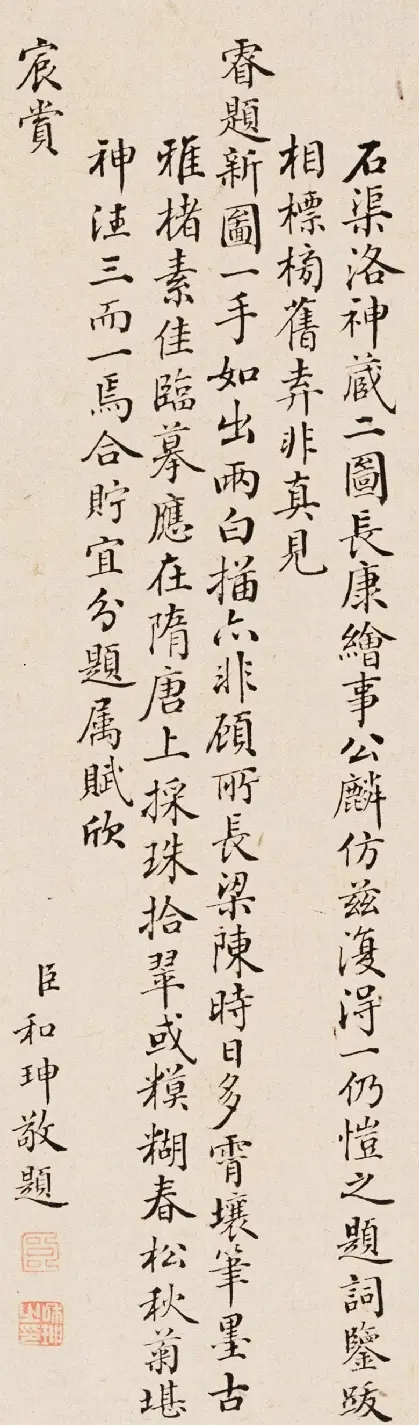 石渠洛神藏二圖長康繪事公麟仿茲復得一仍愷之題詞鑒跋
相標榜舊弆非真見
睿題新圖一手如出兩白描亦非顧所長梁陳時日多霄壤筆墨古
雅楮素佳臨摹應在隋唐上採珠拾翠或糢糊春松秋菊堪
神注三而一焉合貯宜分題属賦欣
宸賞
臣和珅敬題